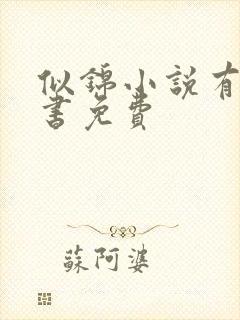 似錦小說有
書免費
蘇阿婆